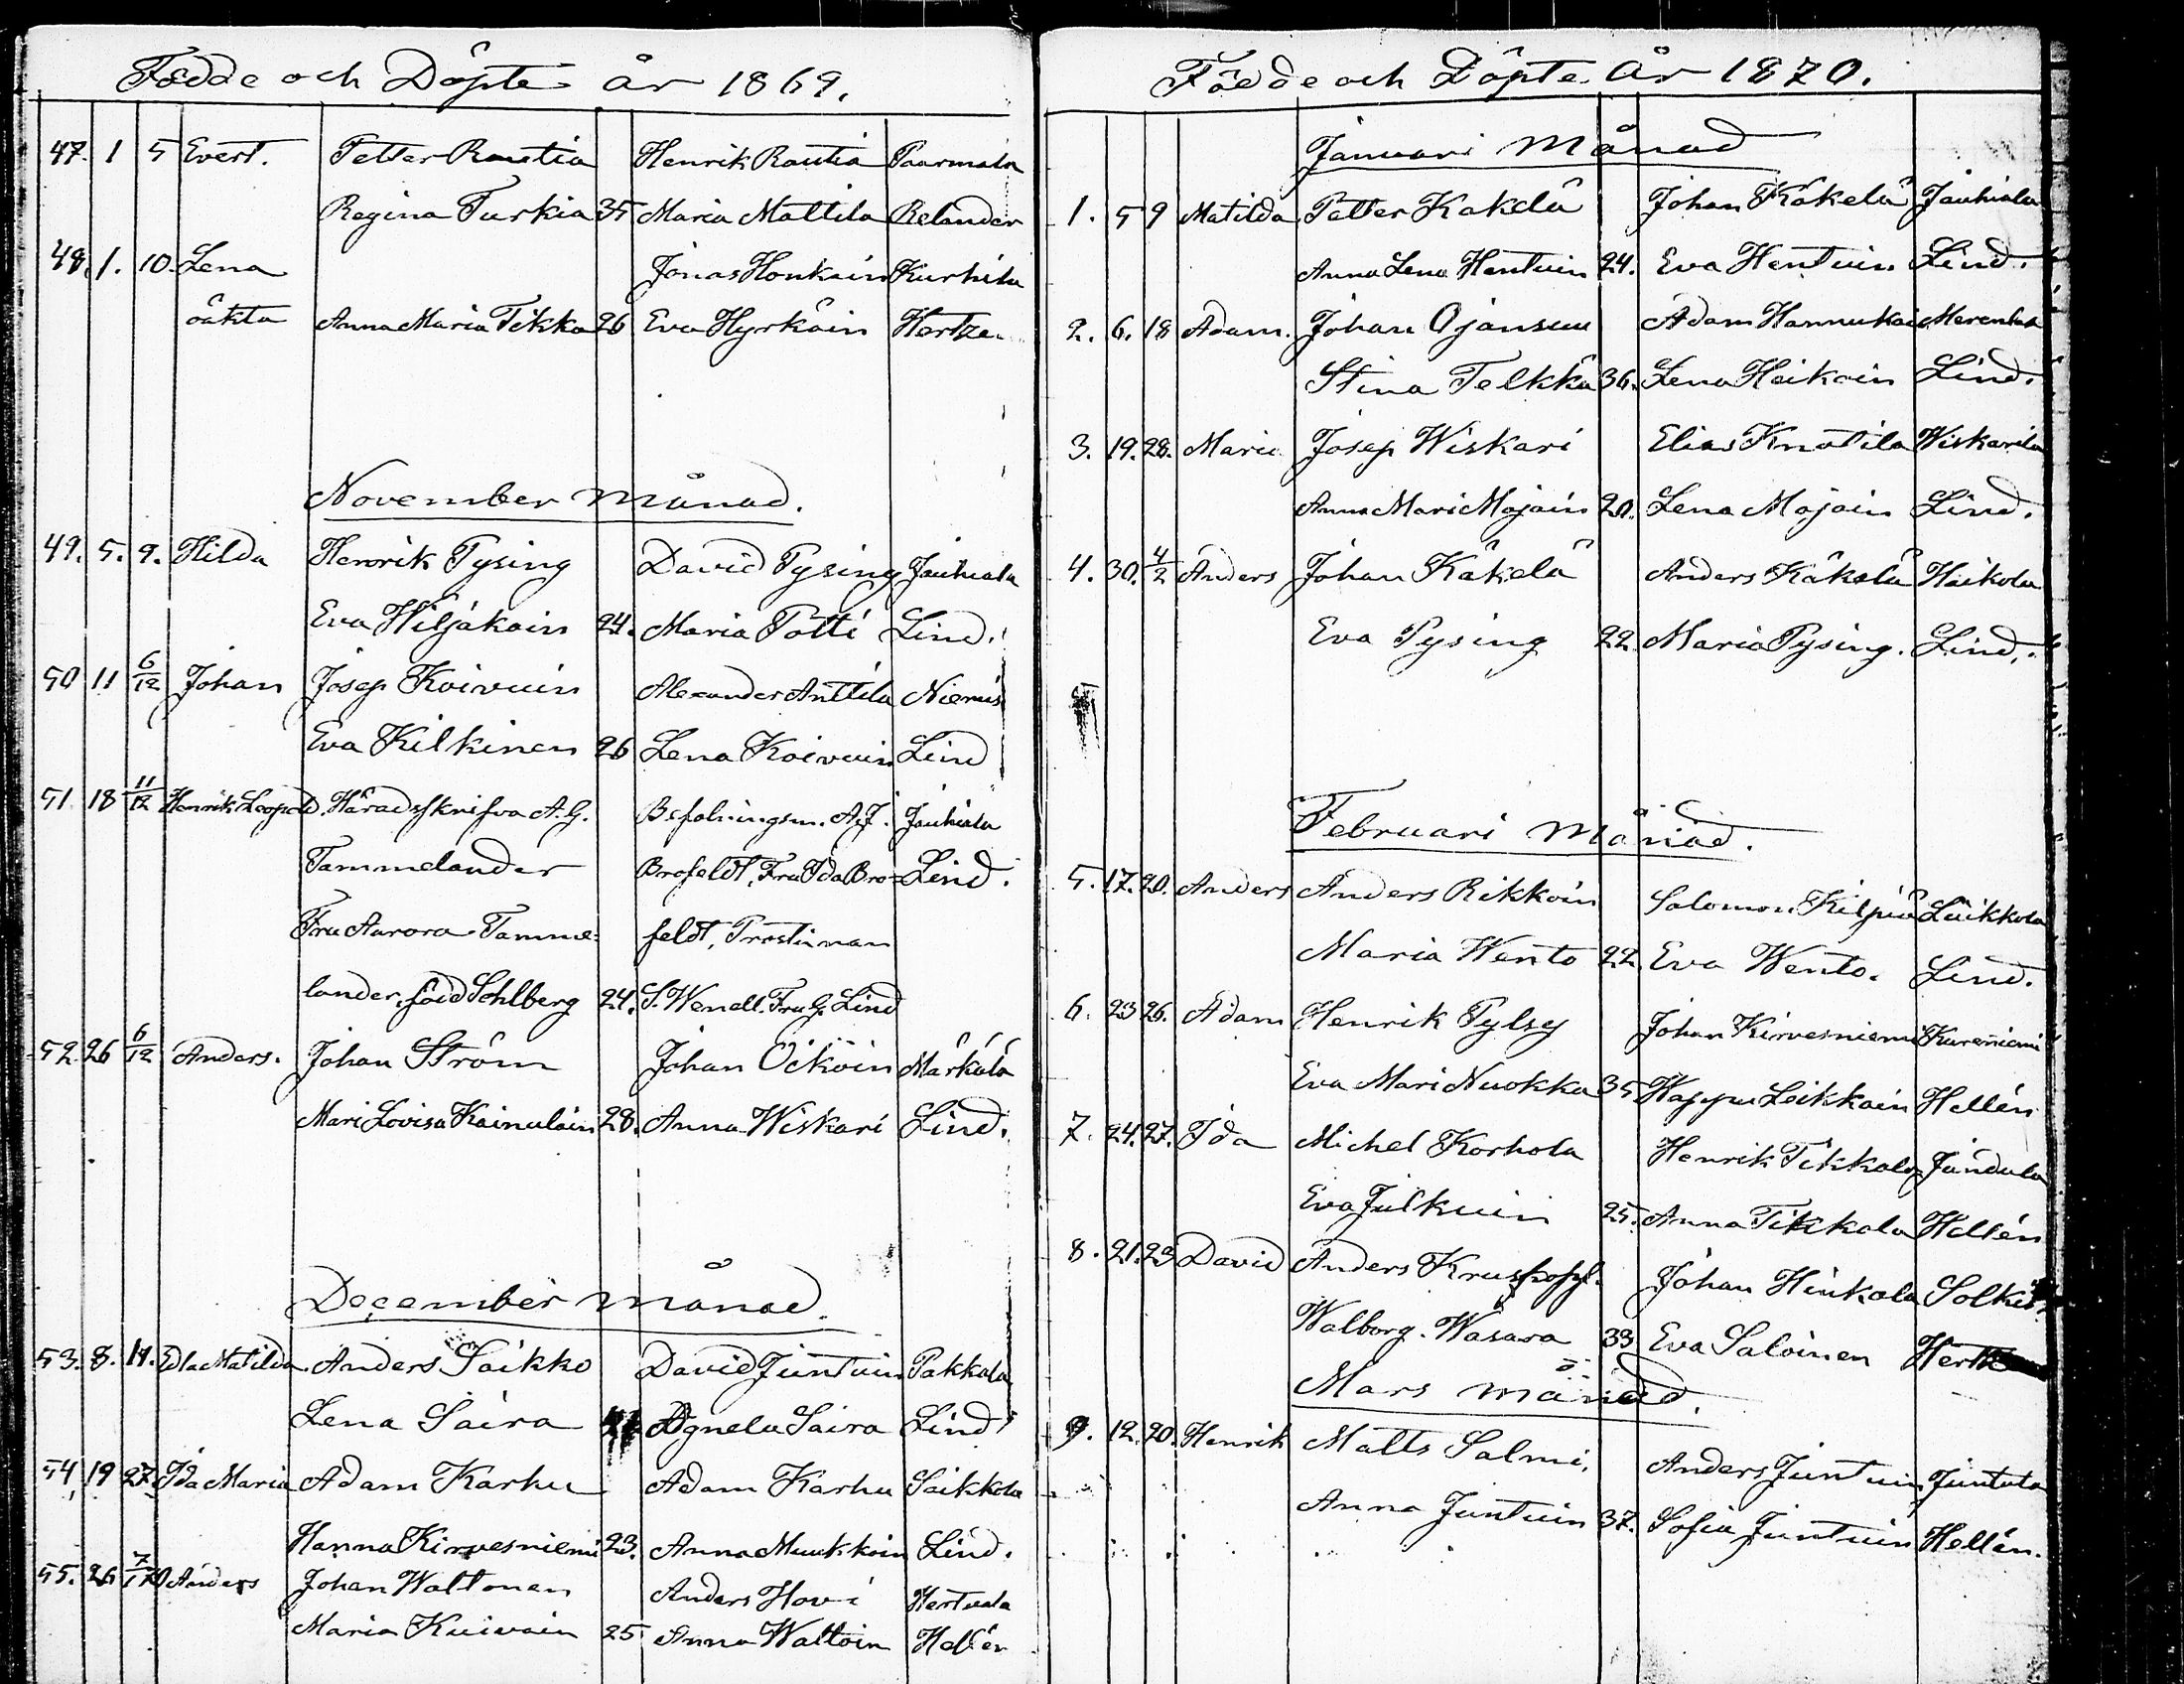 Födde och Döpte år 1869.
47. 1 5 Evert. Petter Rautia Henrik Rautia Paarmala
Regina Turkia 35 Maria Mattila Relander
48. 1. 10. Lena Jonas Honkain Kurhila
oäkta Anna Maria Tikka 26 Eva Hyrkäin Hertze
November månad.
49. 5. 9. Hilda Henrik Pysing David Pysing Jauhiala
Eva Hiljakain 24. Maria Pötti Lind.
50 11 6/12 Johan Josep Koivuin Alexander Anttila Niemis
Eva Kilkinen 26 Lena Koivuin Lind
51 18 11/12 Henrik Leopold. Häradsskrifva A. G. Befalningsm. A. J. Jauhiala
Tammelander Brofeldt, Fru Ida Bro= Lind.
Fru Aurora Tamme= feldt, Prostinnan
lander, föd Sohlberg 24. S. Wendell. Fru G. Lind
52. 26 6/12 Anders. Johan Ström Johan Öiköin Märkälä
Mari Lovisa Kainulain 28. Anna Wiskari Lind.
December månad.
53. 8. 11. Edla Matilda Anders Saikko David Juntuin Pakkala
Lena Saira Agneta Saira Lind
54, 19 27. Ida Maria Adam Karhu Adam Karhu Saikkola
Hanna Kirvesniemi 23. Anna Muukkoin Lind.
55. 26 7/1 70 Anders Johan Waltonen Anders Hovi Hertuala
Maria Kuivain 25 Anna Waltoin Hellén
Födde och Döpte År 1870.
Januari Månad
1. 5 9 Matilda Petter Käkelä Johan Käkelä Jauhiala
Anna Lena Hentuin 24. Eva Hentuin Lind.
2. 6. 18 Adam. Johan Ojansuu Adam Hannukai
Stina Telkkä 36. Lena Heikoin Lind.
3. 19. 28. Maria Josep Wiskari Elias Knutila Wiskarila
Anna Mari Majain 20. Lena Majain Lind.
4. 30. 4/2 Anders Johan Käkelä Anders Käkelä Haikola
Eva Pysing 22 Maria Pysing. Lind.
Februari månad.
5. 17. 20. Anders Anders Rikkoin Salomon Kilpiä Laikkola
Maria Wento 22. Eva Wento. Lind.
6. 23 26. Adam Henrik Pylsy Johan Kirvesniemi Kureniemi
Eva Mari Nuokka 35 Wappu Leikkain Hellén
7. 24. 27. Ida Michel Korhola Henrik Tikkala
Eva Julkuin 25. Anna Tikkala Hellén
8. 21. 23 David Anders Krushopf. Johan Hinkala Solki
Walborg. Wasara 33 Eva Saloinen
Mars månad.
9. 12. 20. Henrik Matts Salmi, Anders Juntuin Juntula
Anna Juntuin 37. Sofia Juntuin Hellén.